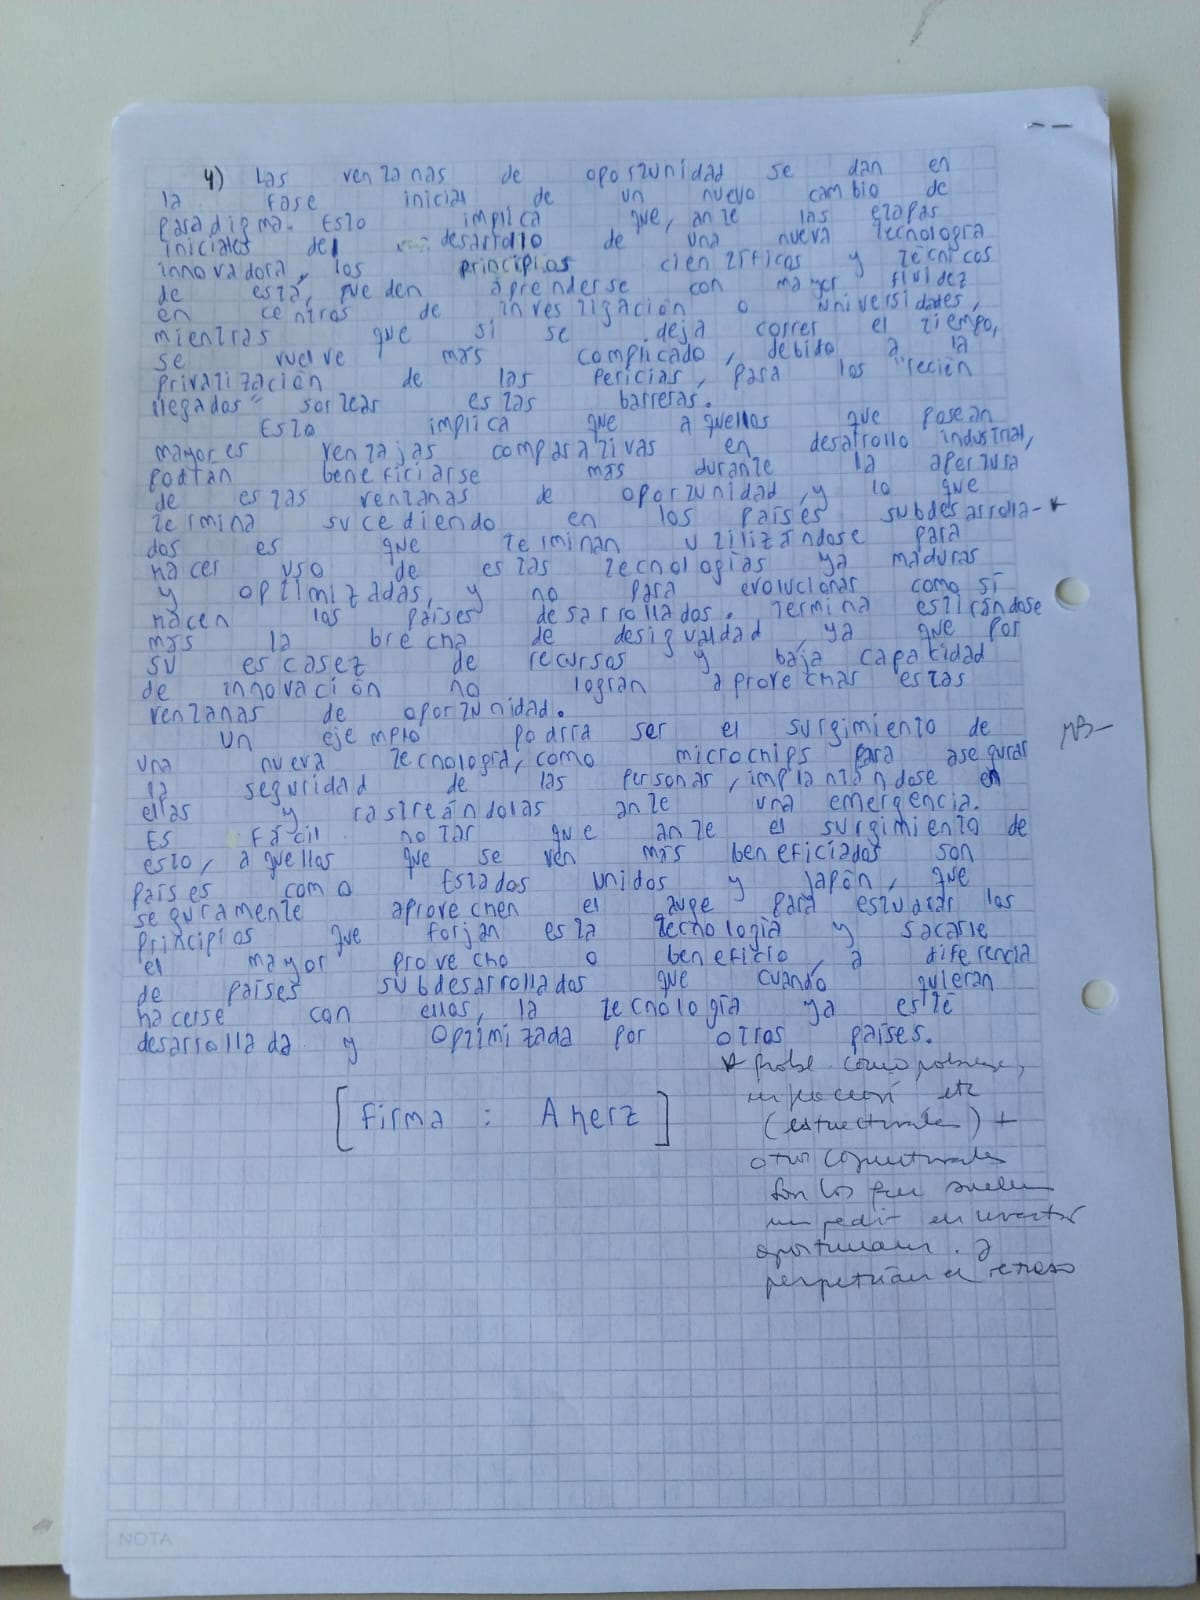 4) Las ventanas de oportunidad se dan en
la fase inicial de un nuevo cambio de
paradigma. Esto implica que, ante las etapas
iniciales del desarrollo de una nueva tecnología
innovadora, los principios científicos y técnicos
de esta, pueden aprenderse con mayor fluidez
en centros de investigación o universidades,
mientras que si se deja correr el tiempo,
se vuelve más complicado, debido a la
privatización de las pericias, para los "recién
llegados" sortear estas barreras.
Esto implica que aquellos que posean
mayores ventajas comparativas en desarrollo industrial,
podrán beneficiarse más durante la apertura
de estas ventanas de oportunidad, y lo que
termina sucediendo en los países subdesarrolla-*
dos es que terminan utilizándose para
hacer uso de estas tecnologías ya maduras
y optimizadas, y no para evolucionar como sí
hacen los países desarrollados. Termina estirándose
más la brecha de desigualdad, ya que por
su escasez de recursos y baja capacidad
de innovación no logran aprovechar estas
ventanas de oportunidad.
Un ejemplo podría ser el surgimiento de
una nueva tecnología, como microchips para asegurar
la seguridad de las personas, implantándose en
ellas y rastreándolas ante una emergencia.
Es fácil notar que ante el surgimiento de
esto, aquellos que se ven más beneficiados son
países como Estados Unidos y Japón, que
seguramente aprovechen el auge para estudiar los
principios que forjan esta tecnología y sacarle
el mayor provecho o beneficio, a diferencia
de países subdesarrollados que cuando quieran
hacerse con ellos, la tecnología ya esté
desarrollada y optimizada por otros países.
[Firma: Aherz]
MB-
* probl. como pobreza,
etc
(estructurales) +
otros coyunturales
son los que suelen
impedir
oportunidades. y
perpetúan el retraso
NOTA